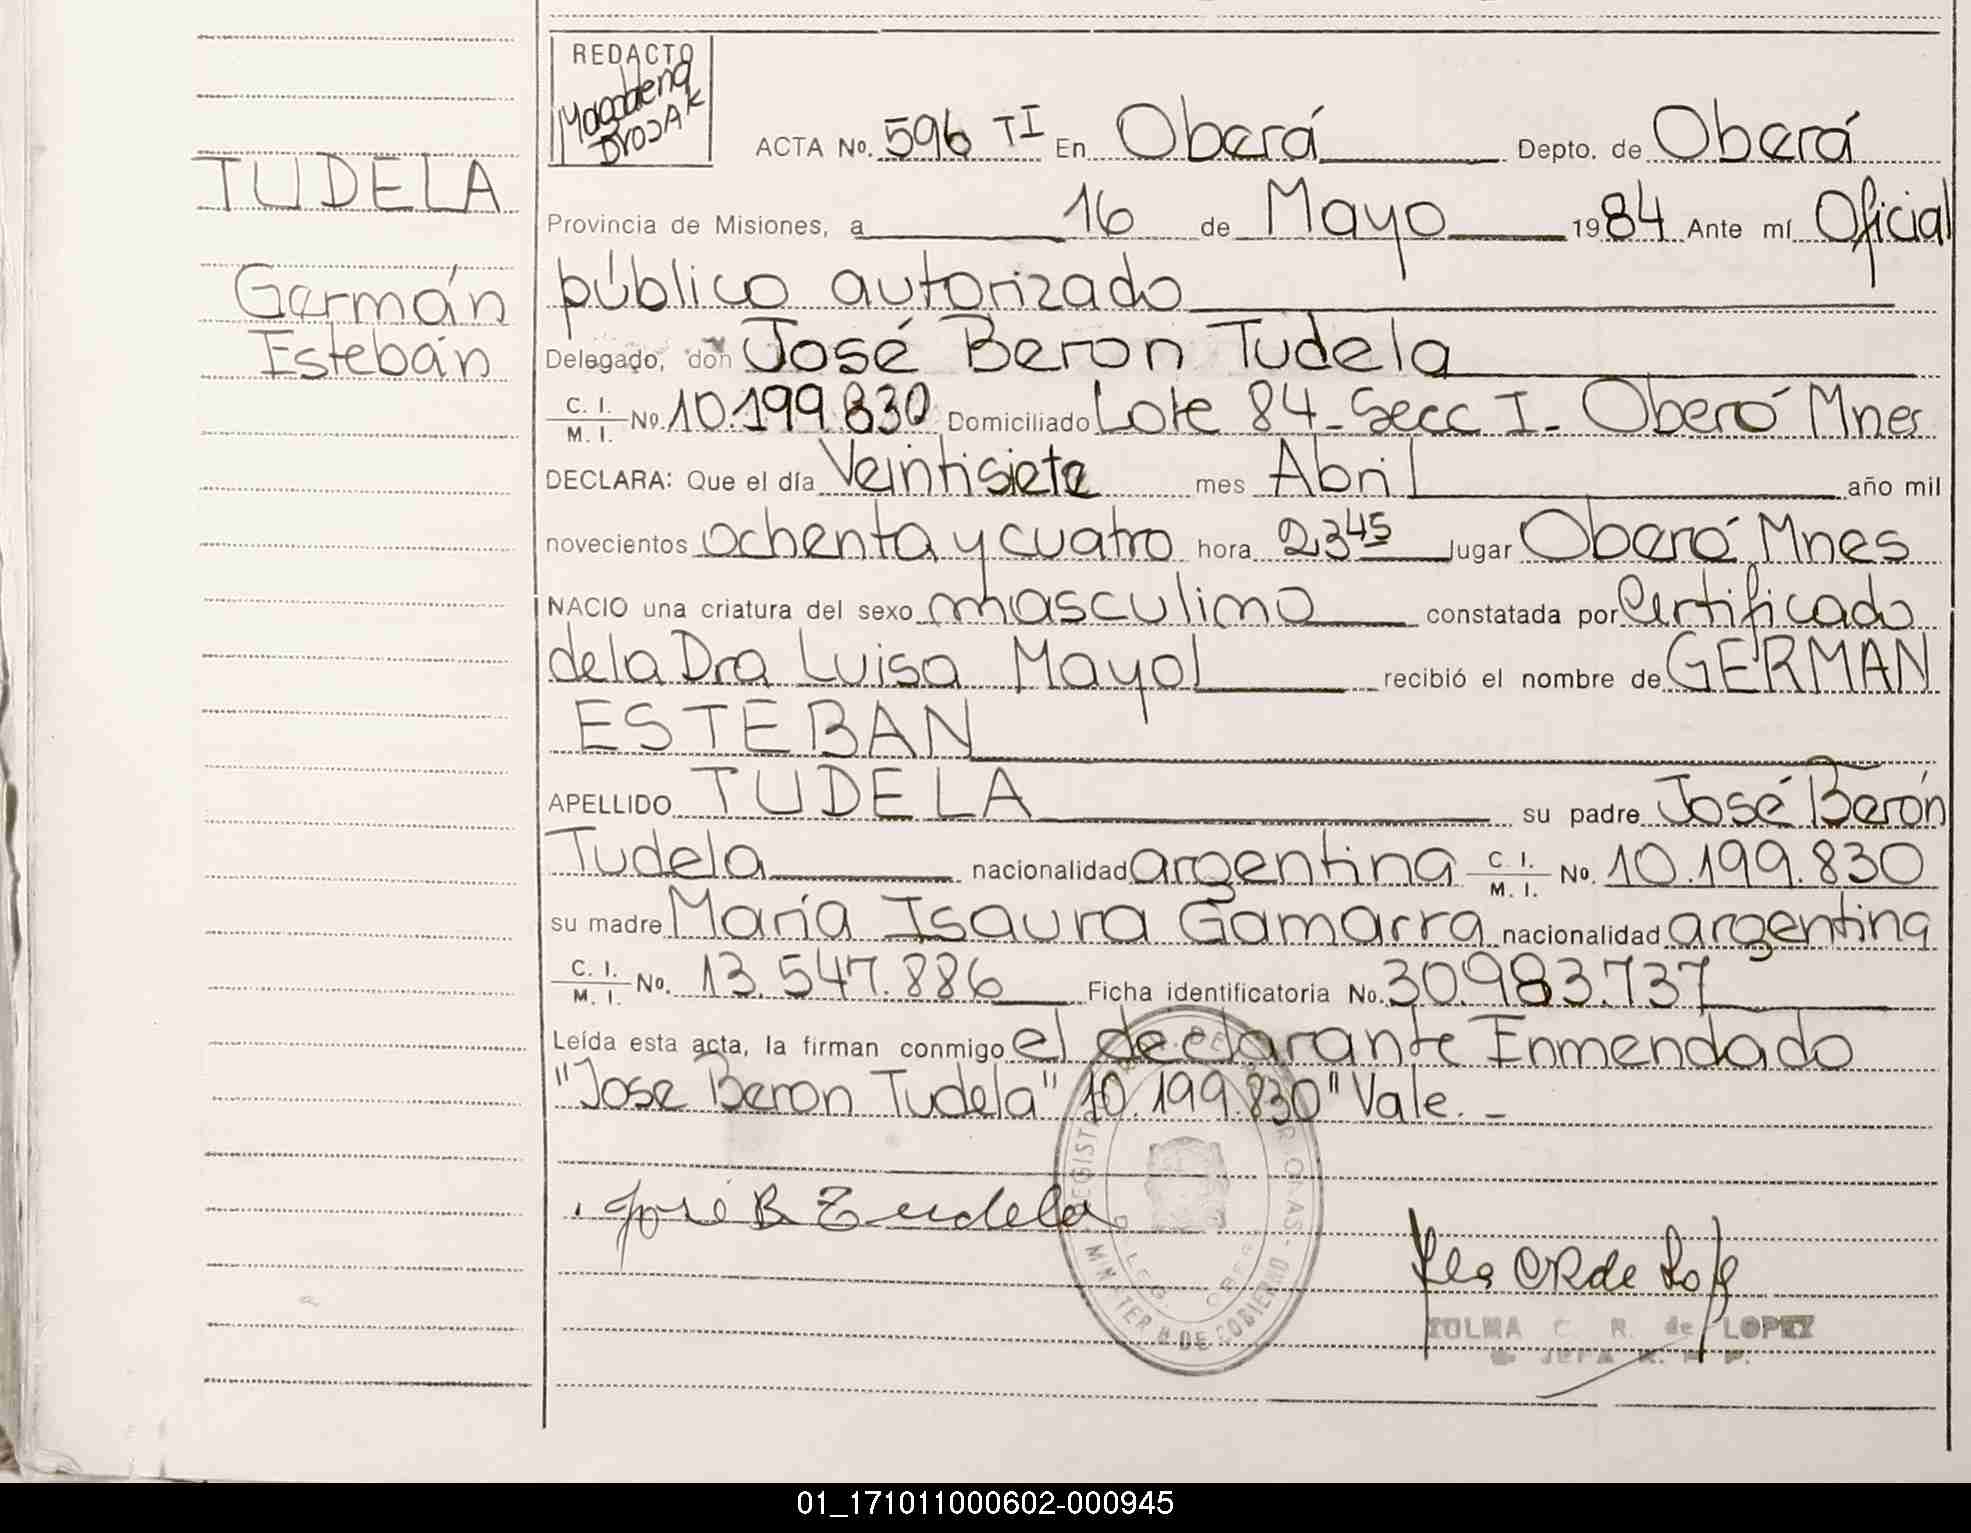 REDACTO
Magdalena
Drosak
ACTA No. 596 TI En Oberá Depto. de Oberá
TUDELA
Provincia de Misiones, a 16 de Mayo 1984 Ante mí Oficial
Germán
público autorizado
Esteban
Delegado, don José Beron Tudela
C. I.
M. I. No. 10.199.830 Domiciliado Lote 84 - Secc I - Oberá Mnes
DECLARA: Que el día Veintisiete mes Abril año mil
novecientos ochenta y cuatro hora 23 45 lugar Oberá Mnes
NACIO una criatura del sexo masculino constatada por Certificado
de la Dra Luisa Mayol recibió el nombre de GERMAN
ESTEBAN
APELLIDO TUDELA su padre José Berón
Tudela nacionalidad argentina C. I. M. I. No. 10.199.830
su madre María Isaura Gamarra nacionalidad argentina
C. I.
M. I. No. 13.547.886 Ficha identificatoria No. 30.983.737
Leída esta acta, la firman conmigo el declarante Enmendado
"Jose Beron Tudela" 10.199.830" Vale. -
José B Tudela
MINISTERIO DE GOBIERNO
C. R. de LOPEZ
JEFA
01_171011000602-000945